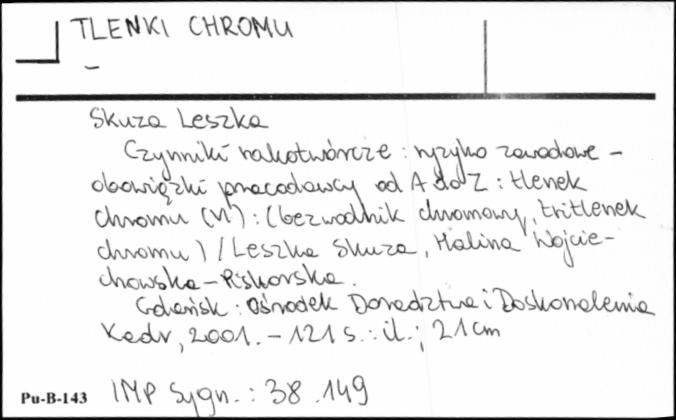 TLENKI CHROMU
–
Skuza Leszka
Czynniki rakotwórcze : ryzyko zawodowe –
obowiązki pracodawcy od A do Z : tlenek
chromu (VI) : (bezwodnik chromowy, tritlenek
chromu) / Leszka Skuza, Halina Wojcie-
chowska-Piskorska.
Gdańsk : Ośrodek Doradztwa i Doskonalenia
Kadr, 2001. – 121 s. : il. ; 21 cm
Pu-B-143 IMP Sygn. : 38.149